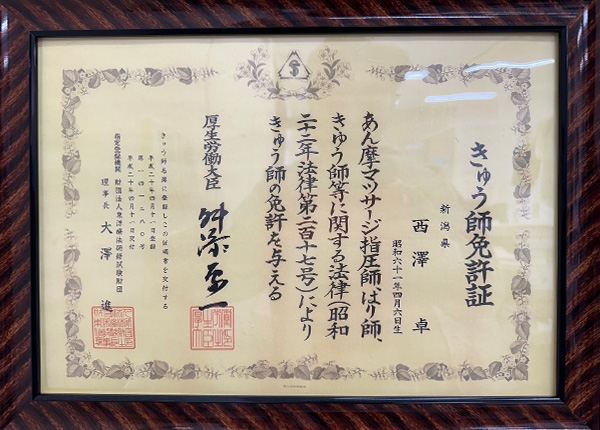 きゅう師免許証
新潟県
西澤 卓
昭和六十一年四月六日生
あん摩マツサージ指圧師、はり師、
きゅう師等に関する法律(昭和
二十二年法律第二百十七号)により
きゅう師の免許を与える
厚生労働大臣 舛添要一
きゅう師名簿に登録しこの証明書を交付する
平成二十年四月十八日登録
平成二十年四月十八日交付
指定登録機関 財団法人東洋療法研修試験財団
理事長 大澤 進